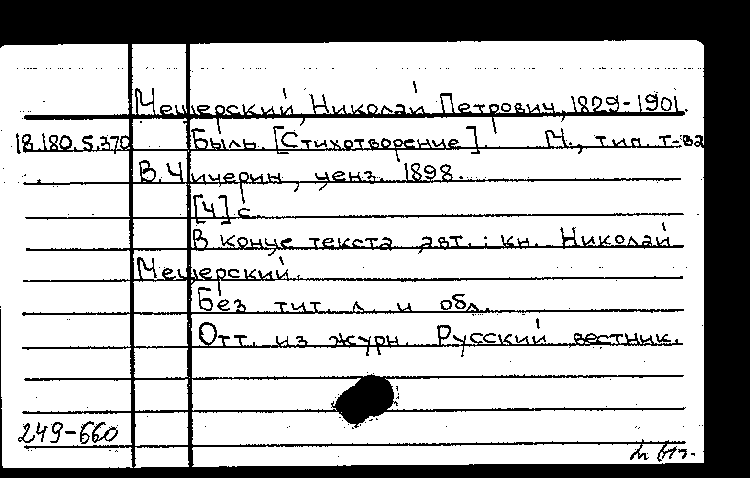 Мещерский, Николай Петрович, 1829-1901.
18.180.5.370 Быль. [Стихотворение]. М., тип. т-ва
В. Чичерин, ценз. 1898.
[4] с.
В конце текста авт.: кн. Николай
Мещерский.
Без тит. л. и обл.
Отт. из журн. Русский вестник.
249-660